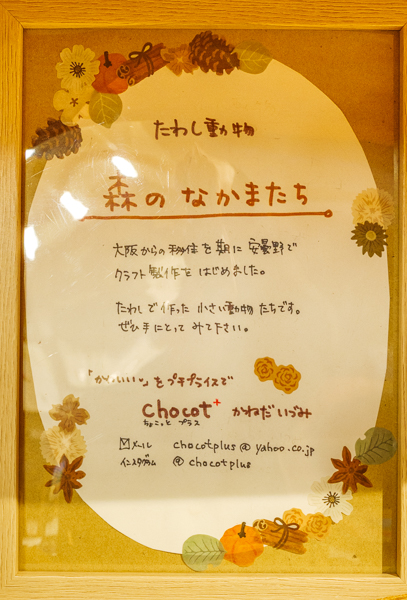 たわし動物
森のなかまたち
大阪からの移住を期に安曇野で
クラフト製作をはじめました。
たわしで作った小さい動物たちです。
ぜひ手にとってみて下さい。
「かわいい」をプチプライスで
chocot+ かねだいづみ
ちょこっと プラス
メール chocotplus@yahoo.co.jp
インスタグラム @chocotplus